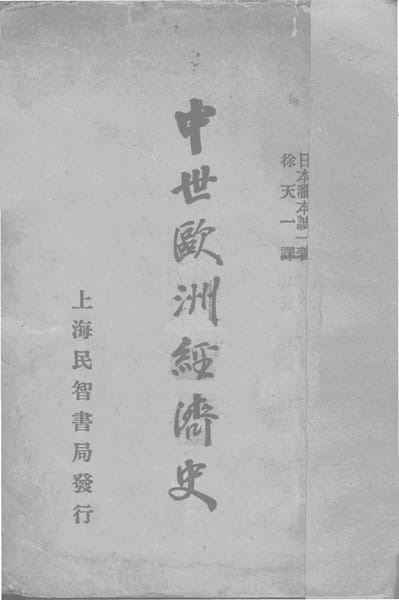 日本瀧本誠一著
徐天一譯
中世歐洲經濟史
上海民智書局發行